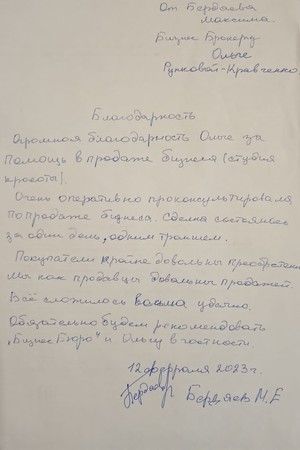 От Бердаева
Максима.
Бизнес Брокеру
Ольге
Рунковой-Кравченко
Благодарность
Огромная благодарность Ольге за
помощь в продаже бизнеса (студия
красоты).
Очень оперативно проконсультировала
по продаже бизнеса. Сделка состоялась
за один день, одним траншем.
Покупатели крайне довольны
Мы как продавцы довольны продажей.
Всё сложилось весьма удачно.
Обязательно будем рекомендовать
„Бизнес Бюро" и Ольгу в частности.
12 февраля 2023г.
М.Е